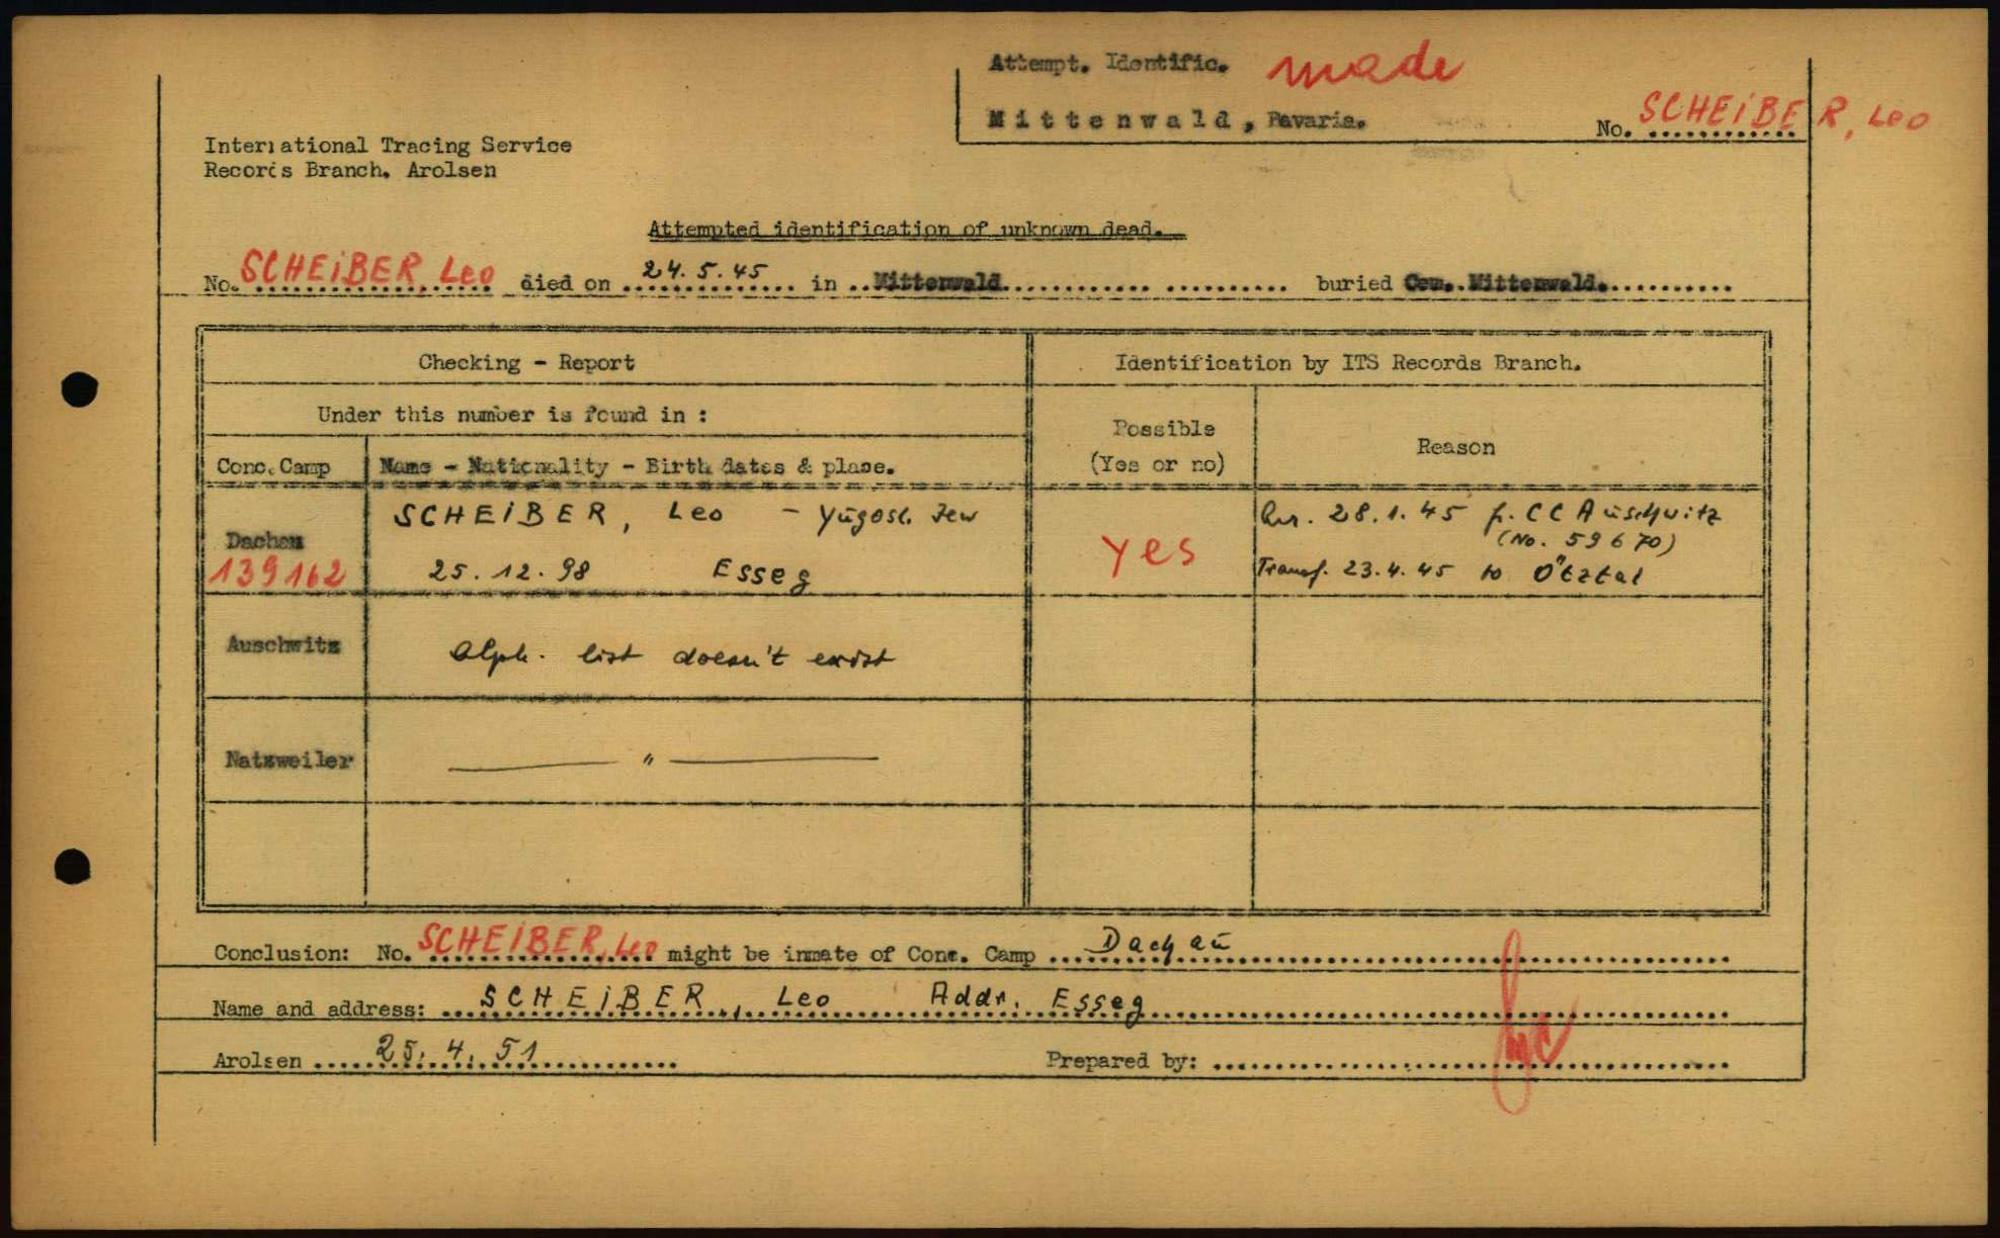 Attempt. Identific. made
Mittenwald, Bavaria.
No. SCHEIBER, Leo
International Tracing Service
Records Branch. Arolsen
Attempted identification of unknown dead.
No. SCHEIBER, Leo died on 24.5.45 in Mittenwald buried Cem. Mittenwald.
Checking - Report
Identification by ITS Records Branch.
Under this number is found in :
Possible
(Yes or no)
Reason
Conc. Camp
Name - Nationality - Birth dates & place.
Dachau
139162
SCHEIBER, Leo - Yugosl. Jew
25.12.98 Esseg
Yes
Arr. 28.1.45 fr. CC Auschwitz
(No. 59670)
Transf. 23.4.45 to Ötztal
Auschwitz
Alph. list doesn't exist
Natzweiler
———— " ————
Conclusion: No. SCHEIBER, Leo might be inmate of Conc. Camp Dachau
Name and address: SCHEIBER, Leo Addr. Esseg
Arolsen 25.4.51
Prepared by: